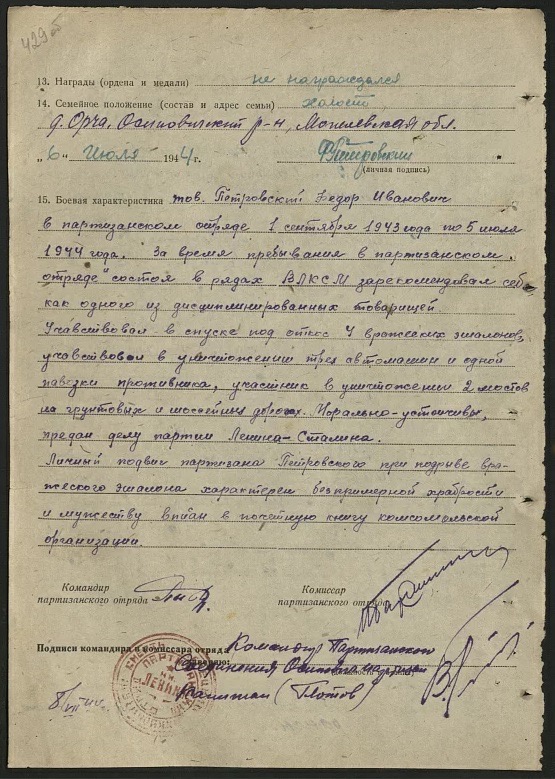 429об
13. Награды (ордена и медали) не награждался
14. Семейное положение (состав и адрес семьи) холост
д. Орча, Осиповичский р-н, Могилевская обл.
„6" июля 1944 г. ФПетровский
(личная подпись)
15. Боевая характеристика тов. Петровский Федор Иванович
в партизанском отряде 1 сентября 1943 года по 5 июля
1944 года. За время пребывания в партизанском
отряде состоя в рядах ВЛКСМ зарекомендовал себя
как одного из дисциплинированных товарищей.
Учавствовал в спуске под откос 4 вражеских эшалонов,
учавствовал в уничтожении трех автомашин и одной
павозки противника, участник в уничтожении 2 мостов
на грунтовых и шоссейных дорогах. Морально-устойчивый,
предан делу партии Ленина-Сталина.
Личный подвиг партизана Петровского при подрыве вра-
жеского эшалона характерен безпримерной храбрости
и мужеству вписан в почетную книгу комсомольской
организации.
Командир
партизанского отряда
Комиссар
партизанского отряда
Подписи командира и комиссара отряда
Командир Партизанского
Соединения Осиповичского
Капитан